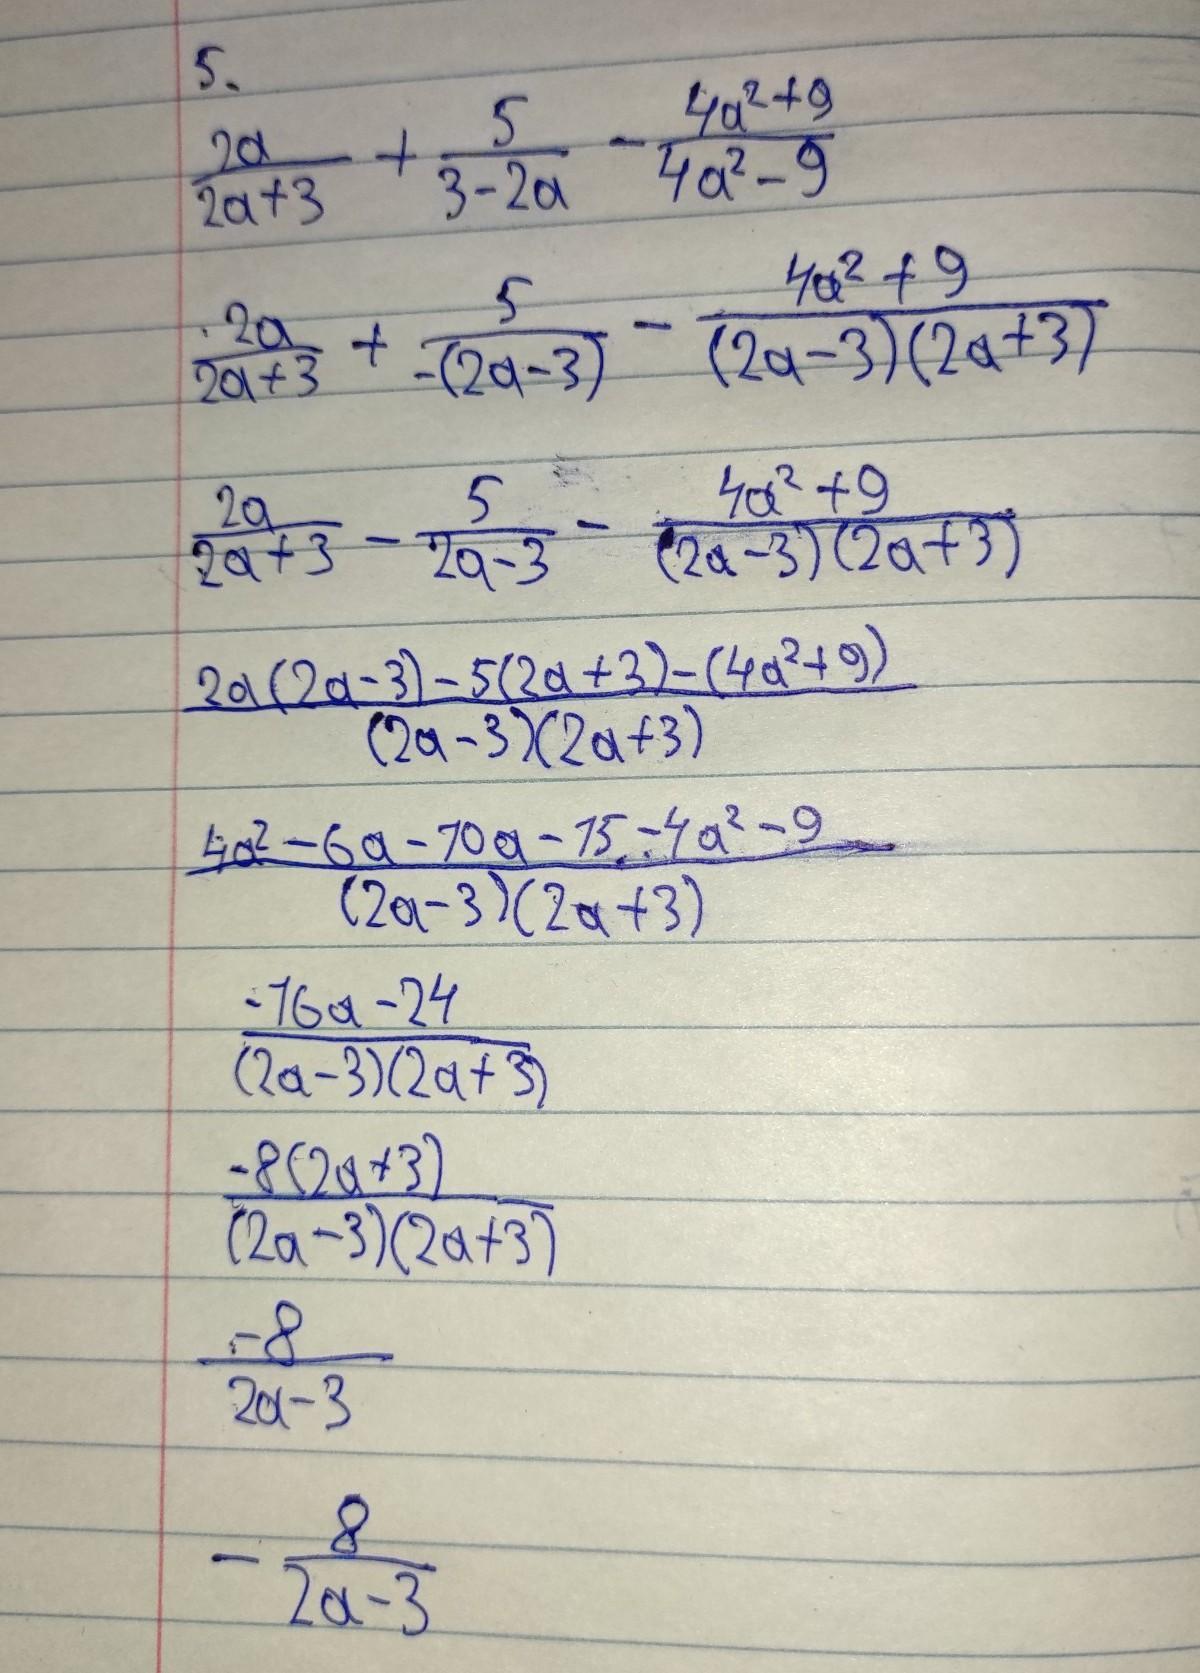 5.
2a/(2a+3) + 5/(3-2a) - (4a²+9)/(4a²-9)
2a/(2a+3) + 5/(-(2a-3)) - (4a²+9)/((2a-3)(2a+3))
2a/(2a+3) - 5/(2a-3) - (4a²+9)/((2a-3)(2a+3))
(2a(2a-3)-5(2a+3)-(4a²+9))/((2a-3)(2a+3))
(4a²-6a-10a-15-4a²-9)/((2a-3)(2a+3))
(-16a-24)/((2a-3)(2a+3))
(-8(2a+3))/((2a-3)(2a+3))
(-8)/(2a-3)
- 8/(2a-3)